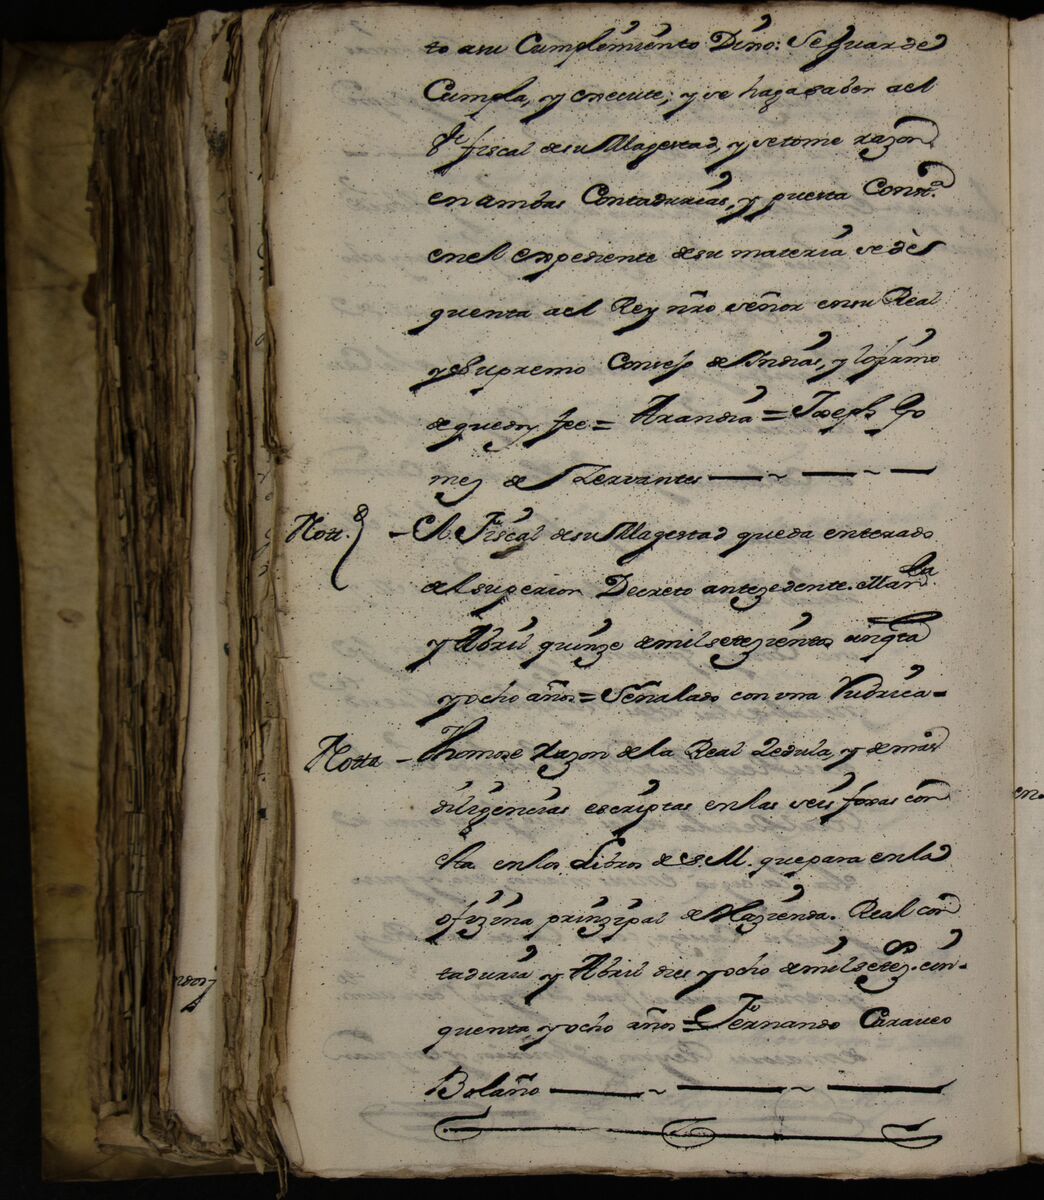 to asu Cumplimiento Dixo: Se guarde
Cumpla, y execute; y se haga saber ael
S.r fiscal desu Magestad, y se tome razon
en ambas Contadurias, y puesta Const.a
enel expediente desu materia se dè
quenta ael Rey nro señor ensu Real
y Supremo Consejo de Indias, y lo firmo
de que doy fee = Arandia = Joseph Go
mez de Zervantes
Nott.n - El Fiscal desu Magestad queda enterado
del superior Decreto antezedente. Man.la
y Abril quinze de mil setezientos cinq.ta
y ocho años = Señalado con vna Rubrica =
Notta - Thomose razon de la Real Zedula, y demas
diligencias escriptas en las seis foxas con
esta en los Libros de S.M. que para en la
ofizina prinzipal de Hazienda. Real con
taduria y Abril dies y ocho de mil setez.s cin-
quenta y ocho años = Fernando Caraveo
Bolaño